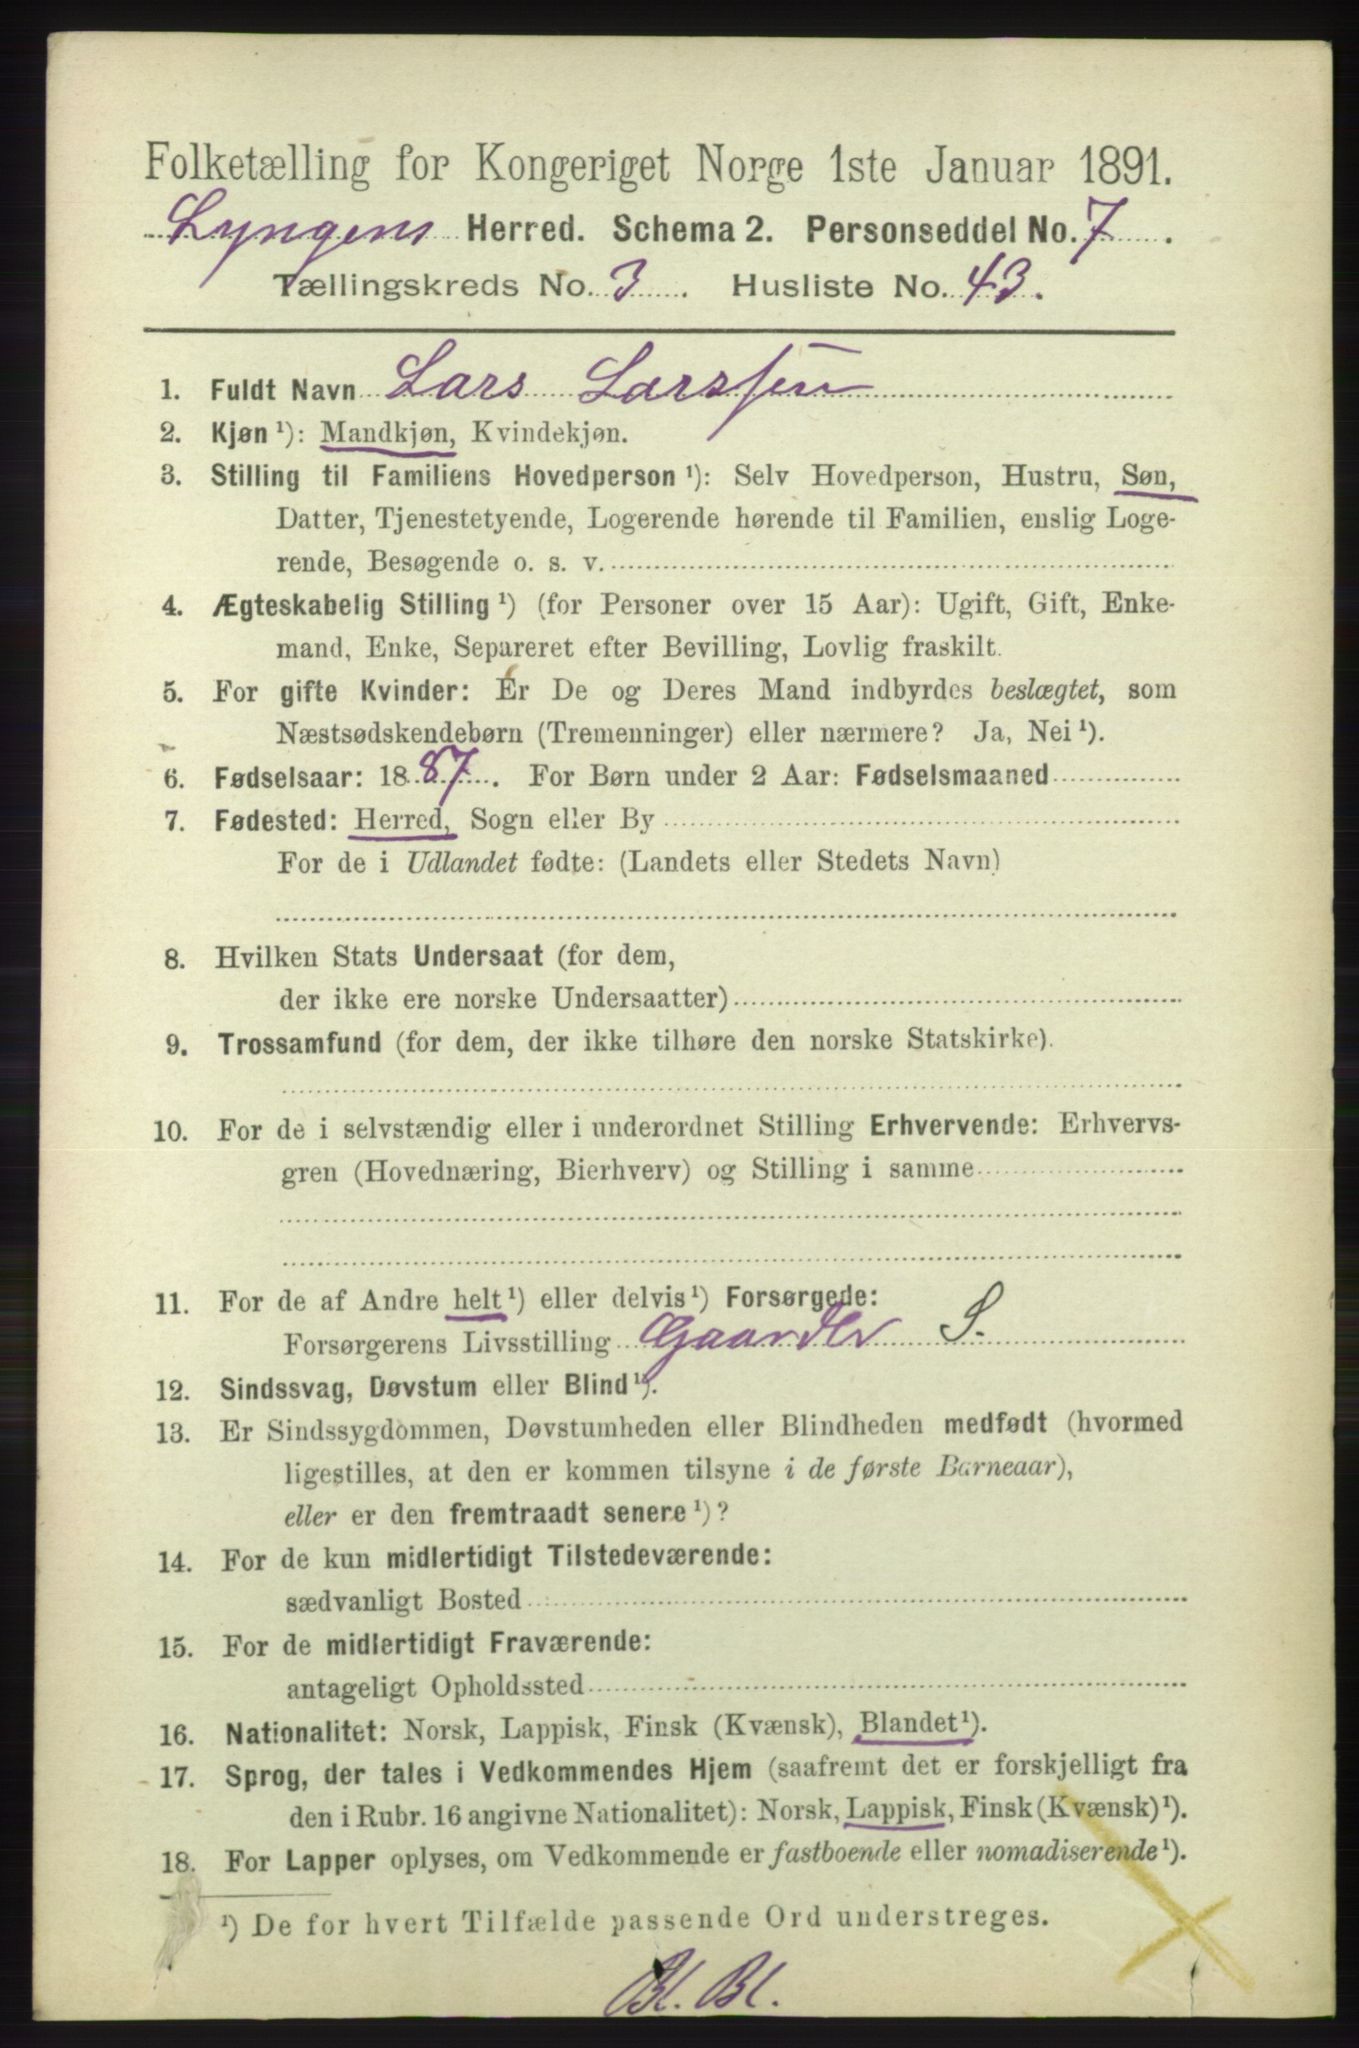 Folketælling for Kongeriget Norge 1ste Januar 1891.
Lyngens Herred. Schema 2. Personseddel No. 7.
Tællingskreds No. 3. Husliste No. 43.
1. Fuldt Navn Lars Larssen
2. Kjøn ¹): Mandkjøn, Kvindekjøn.
3. Stilling til Familiens Hovedperson ¹): Selv Hovedperson, Hustru, Søn,
Datter, Tjenestetyende, Logerende hørende til Familien, enslig Loge-
rende, Besøgende o. s. v.
4. Ægteskabelig Stilling ¹) (for Personer over 15 Aar): Ugift, Gift, Enke-
mand, Enke, Separeret efter Bevilling, Lovlig fraskilt.
5. For gifte Kvinder: Er De og Deres Mand indbyrdes beslægtet, som
Næstsødskendebørn (Tremenninger) eller nærmere? Ja, Nei ¹).
6. Fødselsaar: 1887. For Børn under 2 Aar: Fødselsmaaned
7. Fødested: Herred, Sogn eller By
For de i Udlandet fødte: (Landets eller Stedets Navn)
8. Hvilken Stats Undersaat (for dem,
der ikke ere norske Undersaatter)
9. Trossamfund (for dem, der ikke tilhøre den norske Statskirke).
10. For de i selvstændig eller i underordnet Stilling Erhvervende: Erhvervs-
gren (Hovednæring, Bierhverv) og Stilling i samme
11. For de af Andre helt ¹) eller delvis ¹) Forsørgede:
Forsørgerens Livsstilling S.
12. Sindssvag, Døvstum eller Blind ¹).
13. Er Sindssygdommen, Døvstumheden eller Blindheden medfødt (hvormed
ligestilles, at den er kommen tilsyne i de første Barneaar),
eller er den fremtraadt senere ¹)?
14. For de kun midlertidigt Tilstedeværende:
sædvanligt Bosted
15. For de midlertidigt Fraværende:
antageligt Opholdssted
16. Nationalitet: Norsk, Lappisk, Finsk (Kvænsk), Blandet ¹).
17. Sprog, der tales i Vedkommendes Hjem (saafremt det er forskjelligt fra
den i Rubr. 16 angivne Nationalitet): Norsk, Lappisk, Finsk (Kvænsk) ¹).
18. For Lapper oplyses, om Vedkommende er fastboende eller nomadiserende ¹).
¹) De for hvert Tilfælde passende Ord understreges.
Bl. Bl.